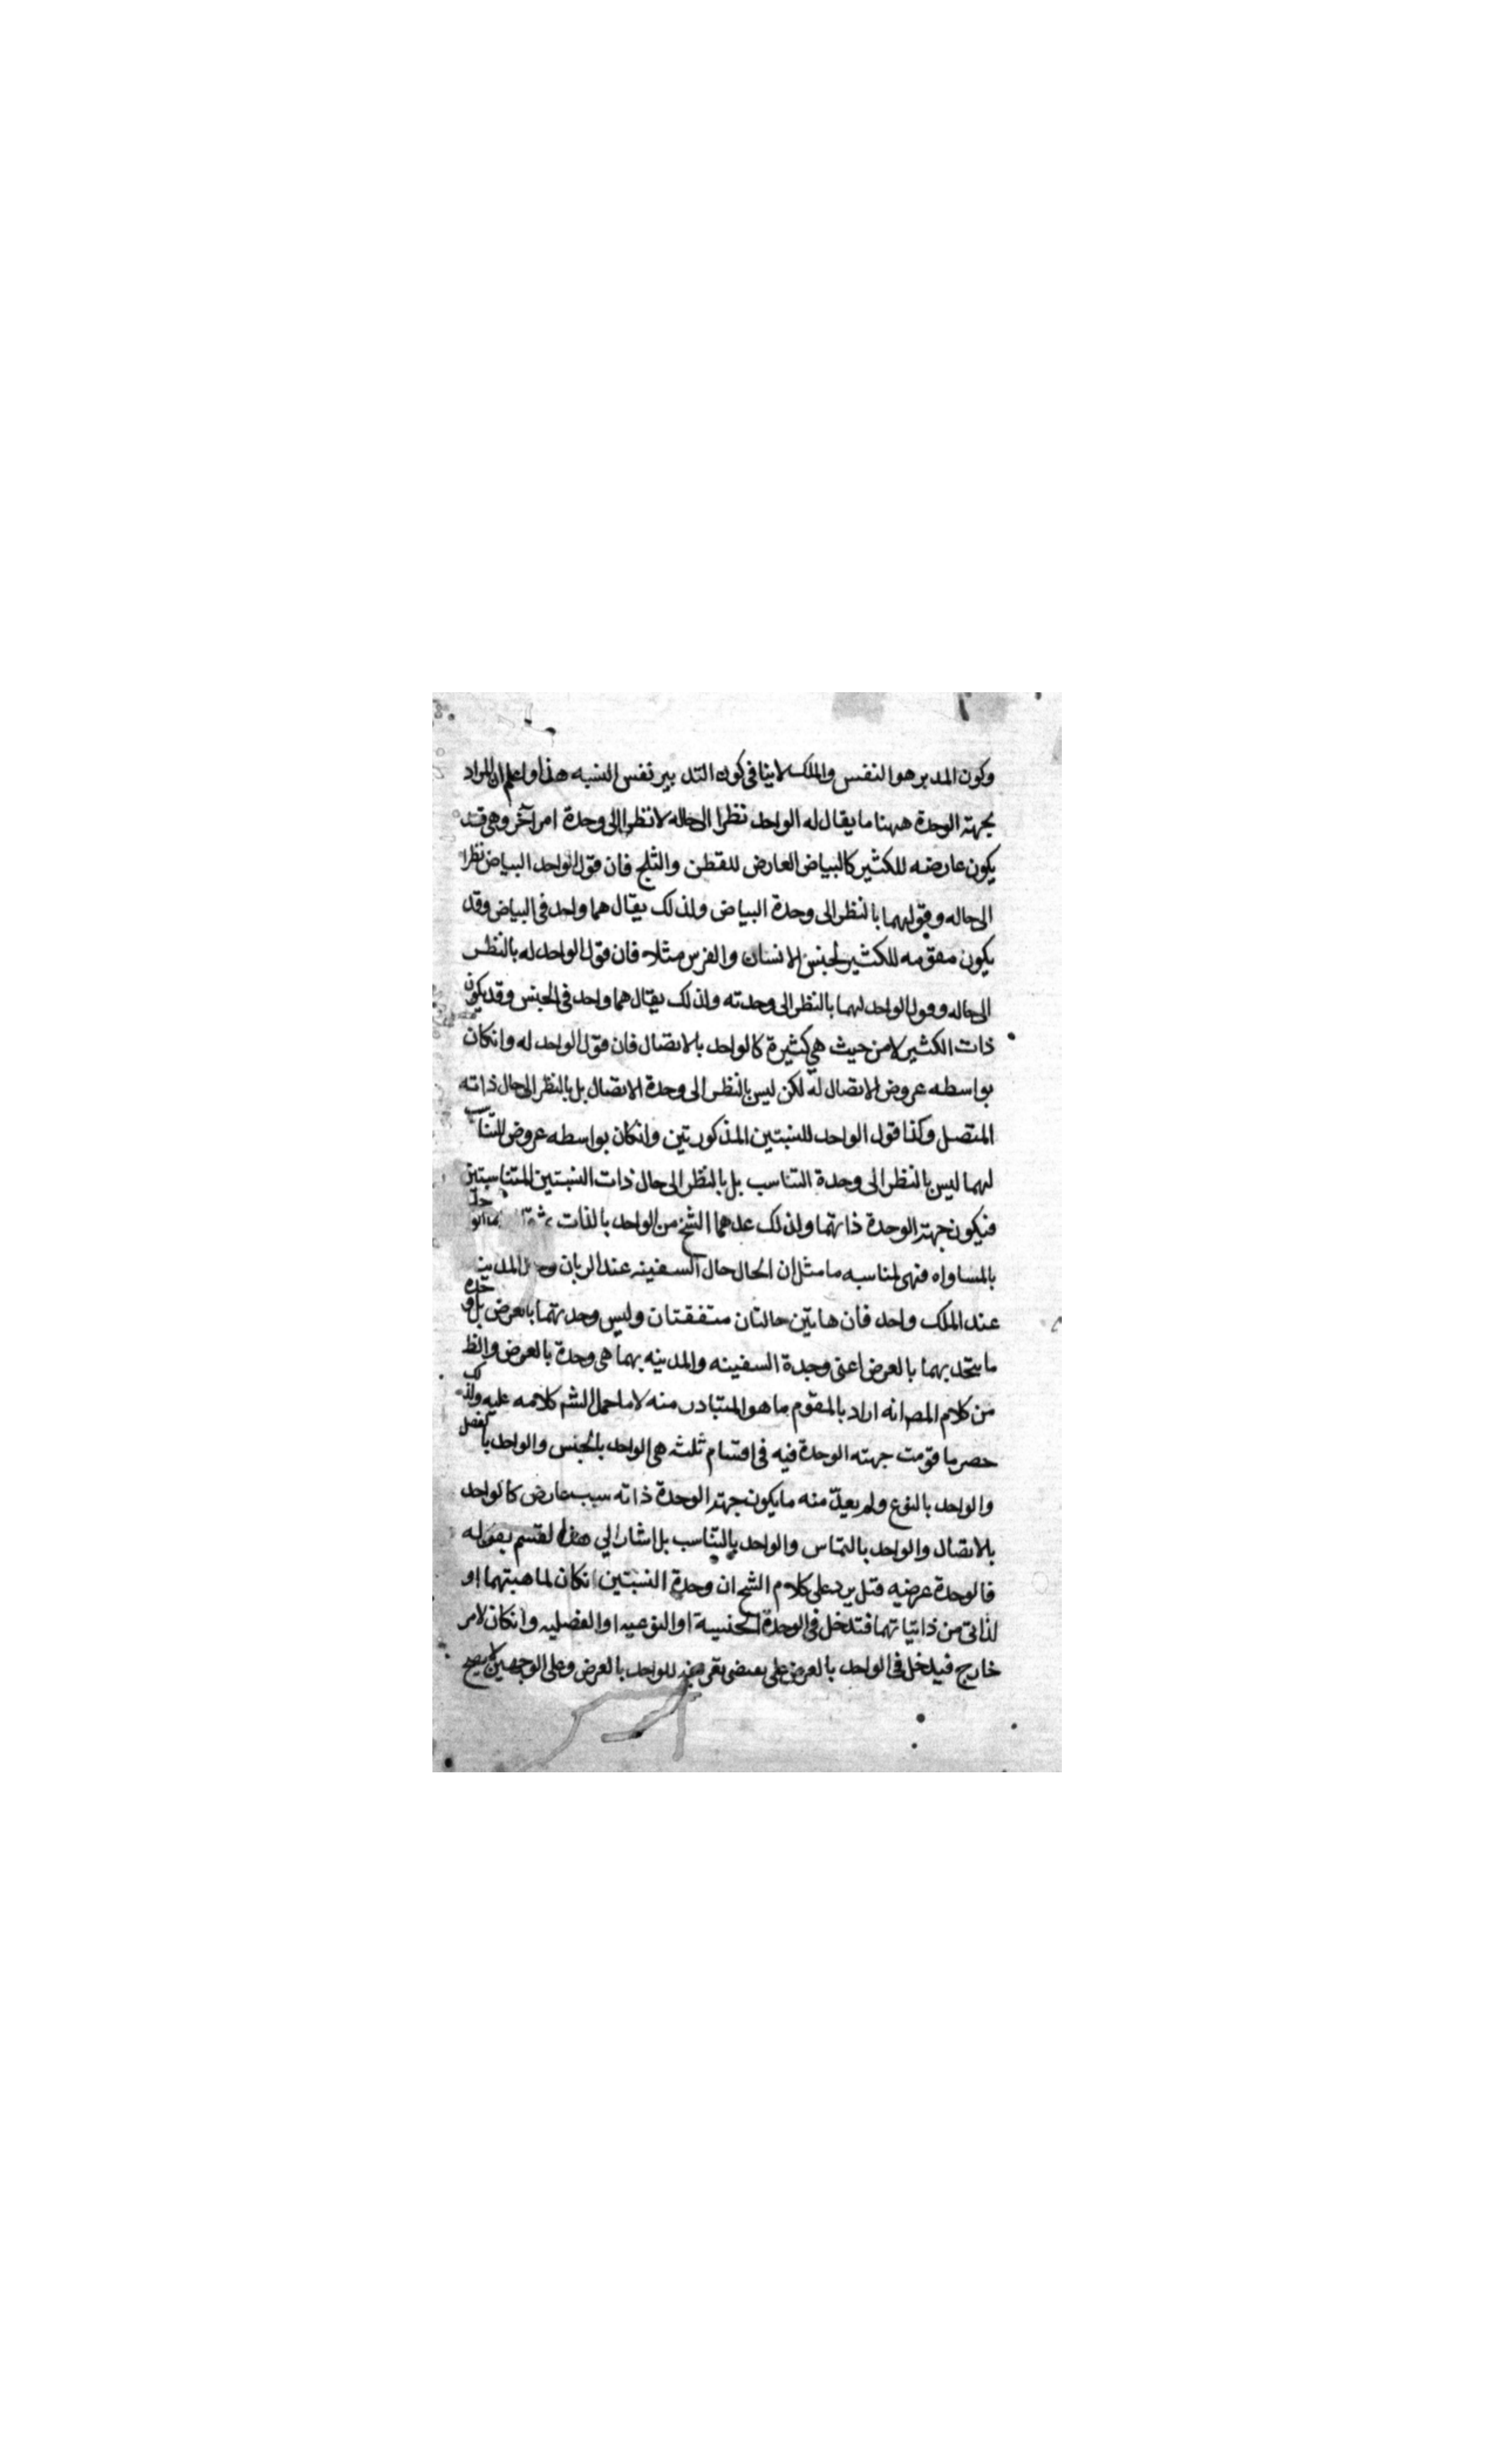 وكون المدبر هو النفس والملك لاينافي كون التدبير نفس النسبه هذا واعلم ان المراد
بجهة الوحدة ههنا ما يقال له الواحد نظرا الى حاله لا نظرا الى وحدة امر آخر وهي قد
يكون عارضه للكثير كالبياض العارض للقطن والثلج فان قول الواحد البياض نظرا
الى حاله وقولهما بالنظر الى وحدة البياض ولذلك يقال هما واحد في البياض وقد
يكون مقومه للكثير لجنس الانسان والفرس مثلا فان قول الواحد له بالنظر
الى حاله وقول الواحد لهما بالنظر الى وحدته ولذلك يقال هما واحد في الجنس وقد يكون
ذات الكثير لا من حيث هي كثيرة كالواحد بالاتصال فان قول الواحد له وانكان
بواسطه عروض الاتصال له لكن ليس بالنظر الى وحدة الاتصال بل بالنظر الى حال ذاته
المتصل وكذا قول الواحد للنسبتين المذكورتين وانكان بواسطه عروض التناسب
لهما ليس بالنظر الى وحدة التناسب بل بالنظر الى حال ذات النسبتين المتناسبتين
فيكون جهة الوحدة ذاتهما ولذلك عدهما الشيخ من الواحد بالذات
بالمساواه فهى لمناسبه ما مثل ان الحال حال السفينه عند الربان المدينه
عند الملك واحد فان هاتين حالتان متفقتان وليس وحدتهما بالعرض بل وحدة
ما يتحد بهما بالعرض اعنى وحدة السفينه والمدينه بهما هى وحدة بالعرض والظ
من كلام المص انه اراد بالمقوم ما هو المتبادر منه لا ما حمل الشم كلامه عليه ولذلك
حصر ما قومت جهته الوحدة فيه فى اقسام ثلثه هى الواحد بالجنس والواحد بالفصل
والواحد بالنوع ولم يعد منه ما يكون جهة الوحدة ذاته سبب عارض كالواحد
بالاتصال والواحد بالتماس والواحد بالتناسب بل اشار الي هذا القسم بقوله
فالوحدة عرضيه قيل يرد على كلام الشيخ ان وحدة النسبتين انكان لماهيتهما او
لذاتى من ذاتياتهما فتدخل في الوحدة الجنسية او النوعيه او الفصليه وانكان لامر
خارج فيدخل فى الواحد بالعرض على للواحد بالعرض وعلى الوجهين لا يصح